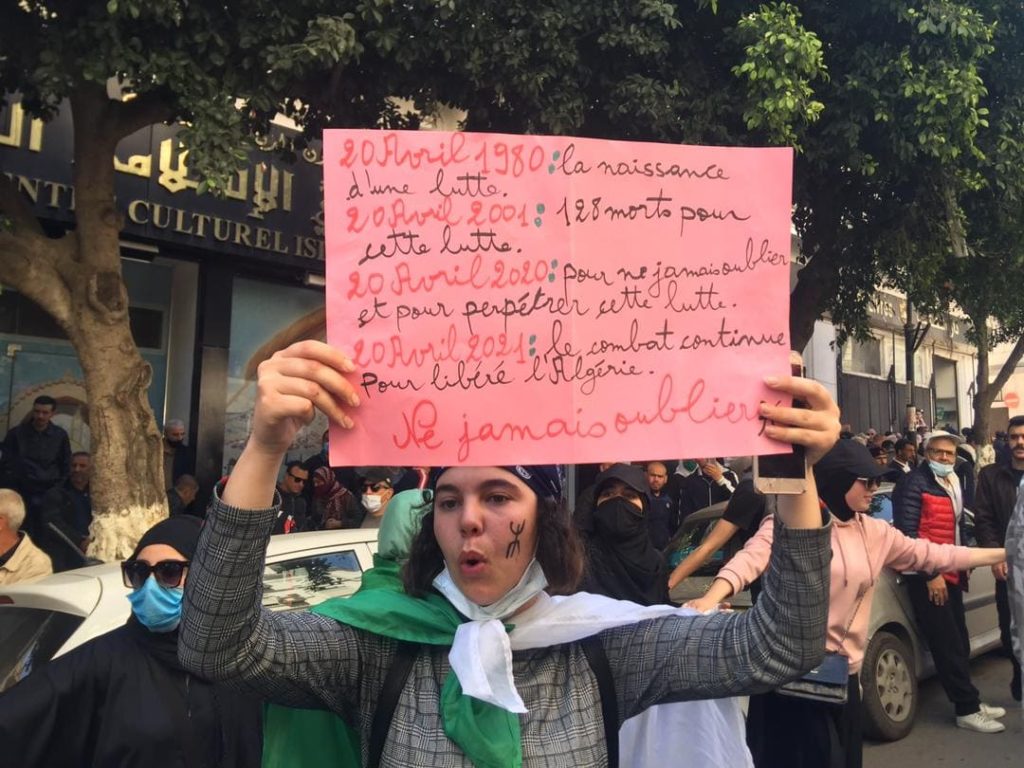 الإسلامي
CULTUREL
20 Avril 1980: la naissance
d'une lutte.
20 Avril 2001: 128 morts pour
cette lutte.
20 Avril 2020: pour ne jamais oublier
et pour perpétrer cette lutte.
20 Avril 2021: le combat continue
Pour libéré l'Algérie.
Ne jamais oublier
ⵣ